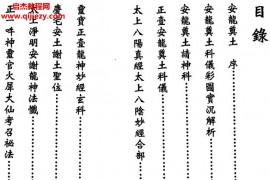 启杰易程网
www.qijieyi.com
目錄
安龍奠土 序
安龍奠土科儀彩圖實況解析
安龍奠土請神科
正壹安龍奠土科儀
太上八陽真經太上八陰妙經合部
靈寶正壹龍神妙經玄科
慶宅安土謝土聖位
太上淨明安謝龍神法懺
正一吽神靈官火犀大仙考召祕法